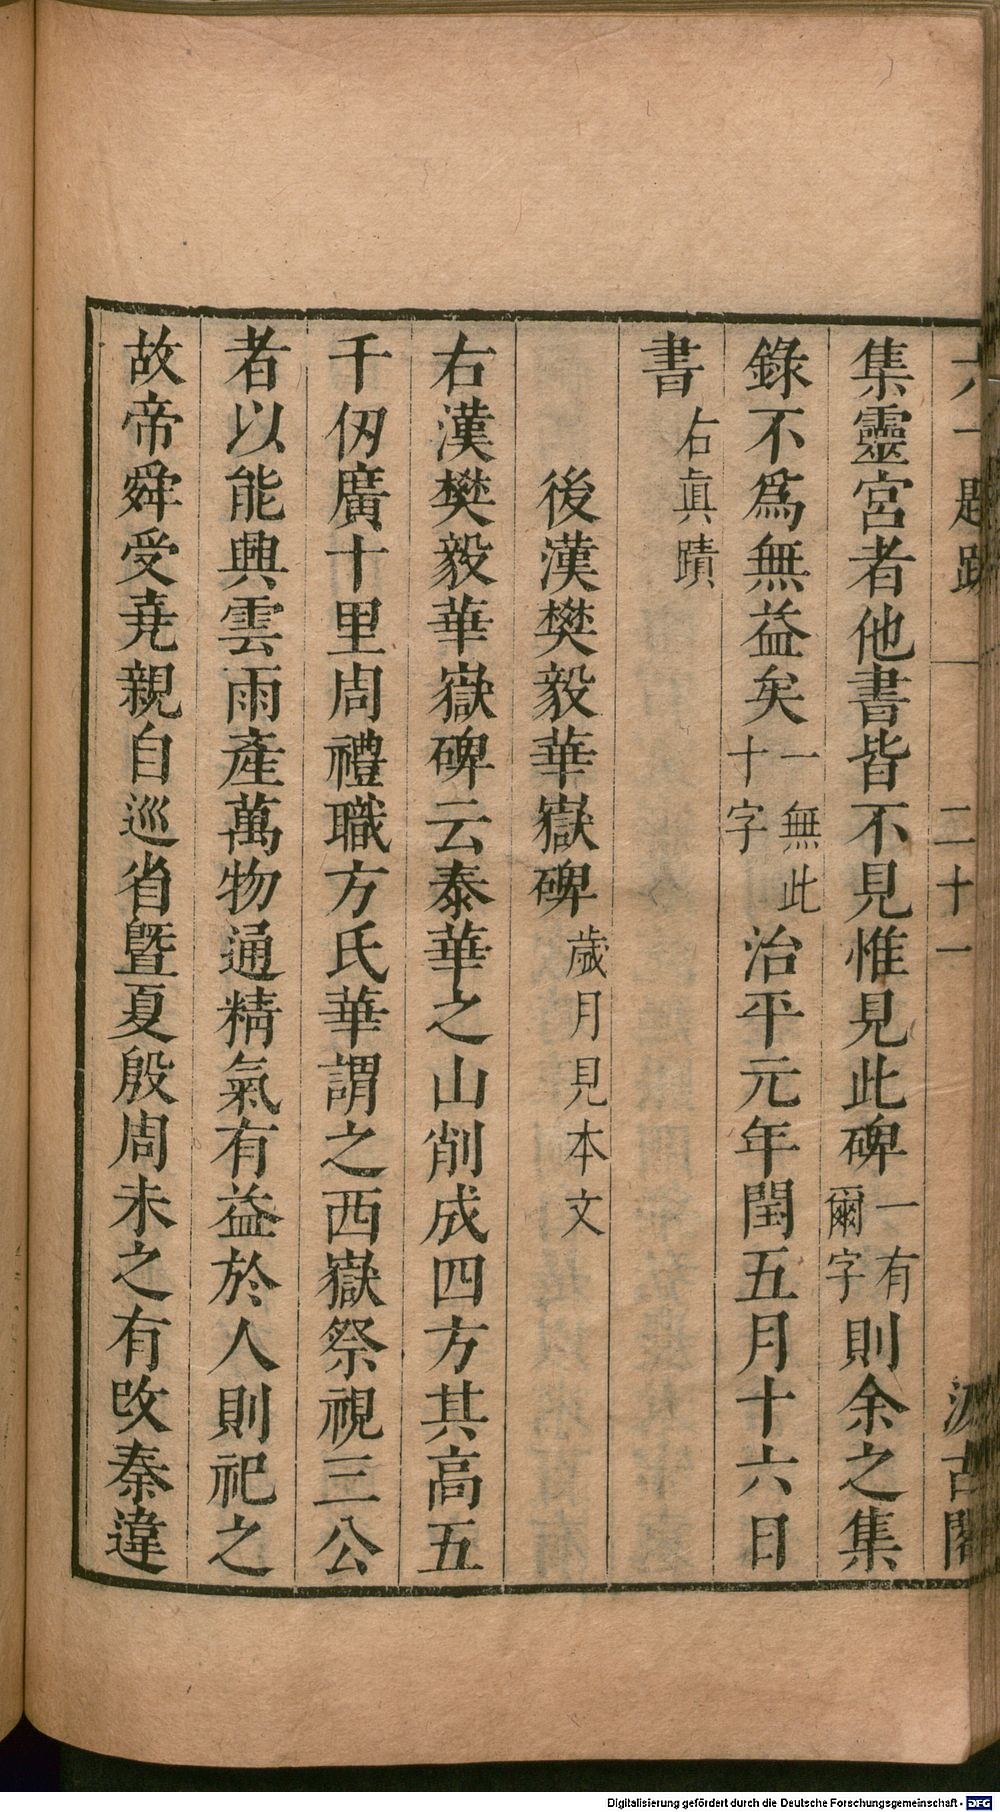 六一題跋 一 二十一 汲古閣
集靈宮者他書皆不見惟見此碑一有爾字則余之集
錄不爲無益矣一無此十字治平元年閏五月十六日
書右眞蹟
後漢樊毅華嶽碑歲月見本文
右漢樊毅華嶽碑云泰華之山削成四方其高五
千仞廣十里周禮職方氏華謂之西嶽祭視三公
者以能興雲雨產萬物通精氣有益於人則祀之
故帝舜受堯親自巡省曁夏殷周未之有攺秦違
Digitalisierung gefördert durch die Deutsche Forschungsgemeinschaft - DFG